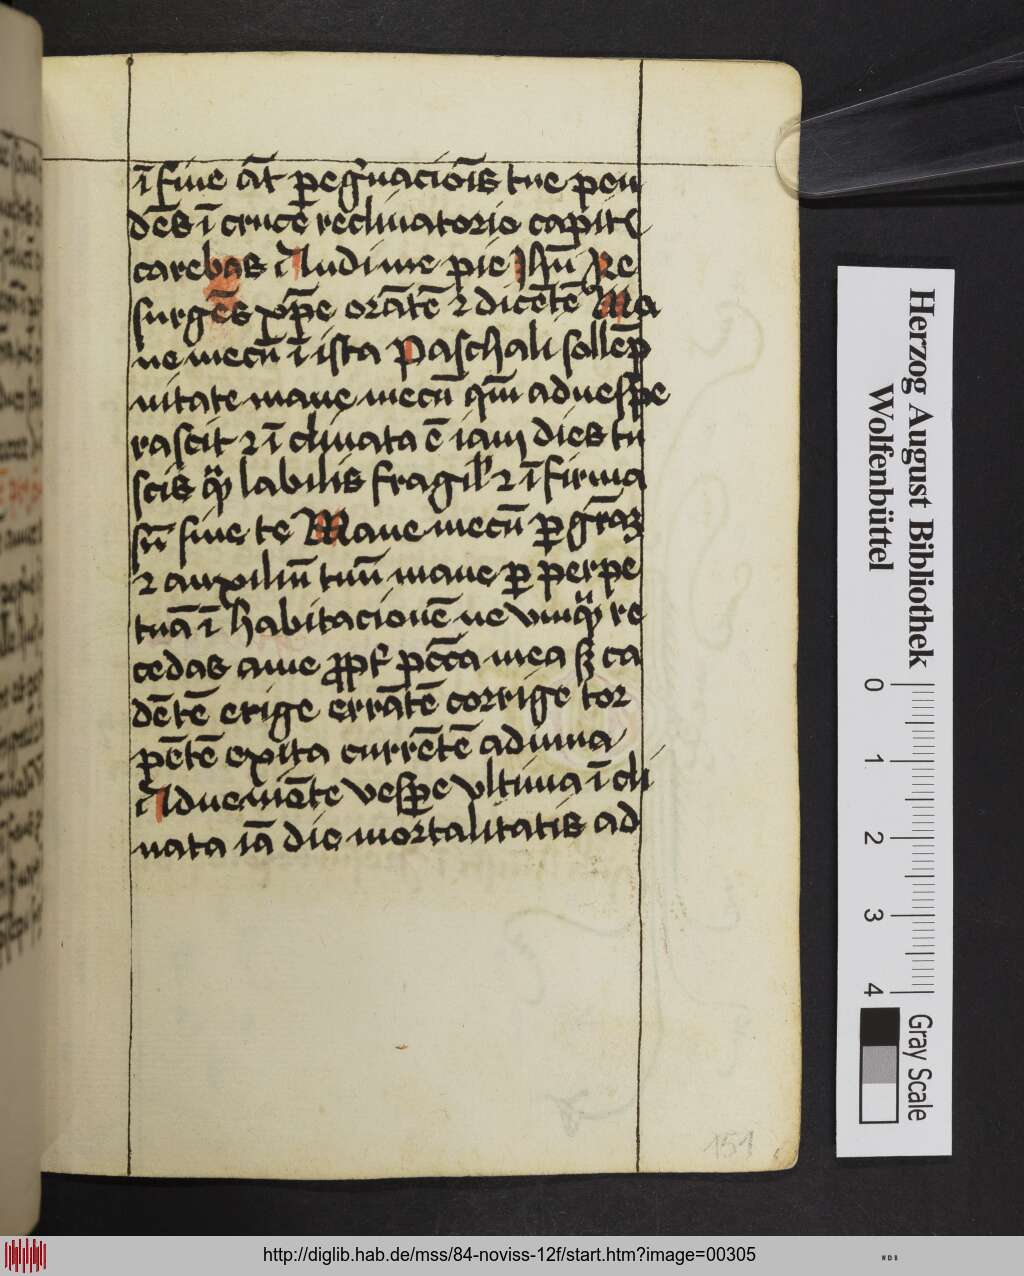 ī fine āt pegͥnacioīs tue pen
dēs ī cruce reclinatorio capitis
carebas Audi me pie Jhū Re
surgēs xp̄e orātē ⁊ dicētē Ma
ne mecū ī ista Paschali sollēp
nitate mane mecū qm̄ aduespe
rascit ⁊ ī clinata ē iam dies tu
scis qͣ labilis fragil̉ ⁊ ī firma
sū sine te Mane mecū ꝑ grāꝫ
⁊ auxiliū tuū mane ꝑ perpe
tuā ī habitacionē ne vmqͣ re
cedas a me ꝓpt̉ pctā mea sꝫ ca
dētē erige errātē corrige tor
pētē exita currētē adiuua
Adueniēte vespe vltima ī cli
nata iā die mortalitatis ad
151
Herzog August Bibliothek
Wolfenbüttel
0 1 2 3 4
Gray Scale
http://diglib.hab.de/mss/84-noviss-12f/start.htm?image=00305